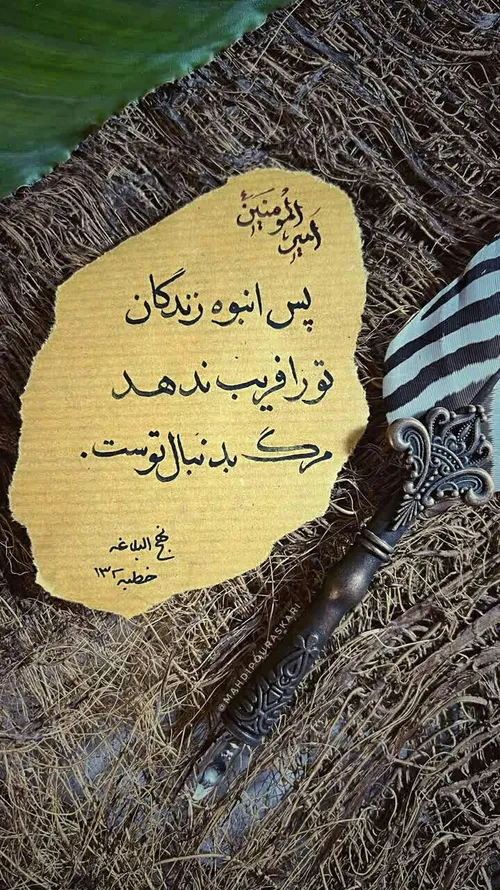 امیر
المؤمنین
پس انبوه زندگان
تو را فریب ندهد
مرگ بدنبال توست.
نهج البلاغه
خطبه ۱۳۲
@MAHDIROUTASKARI